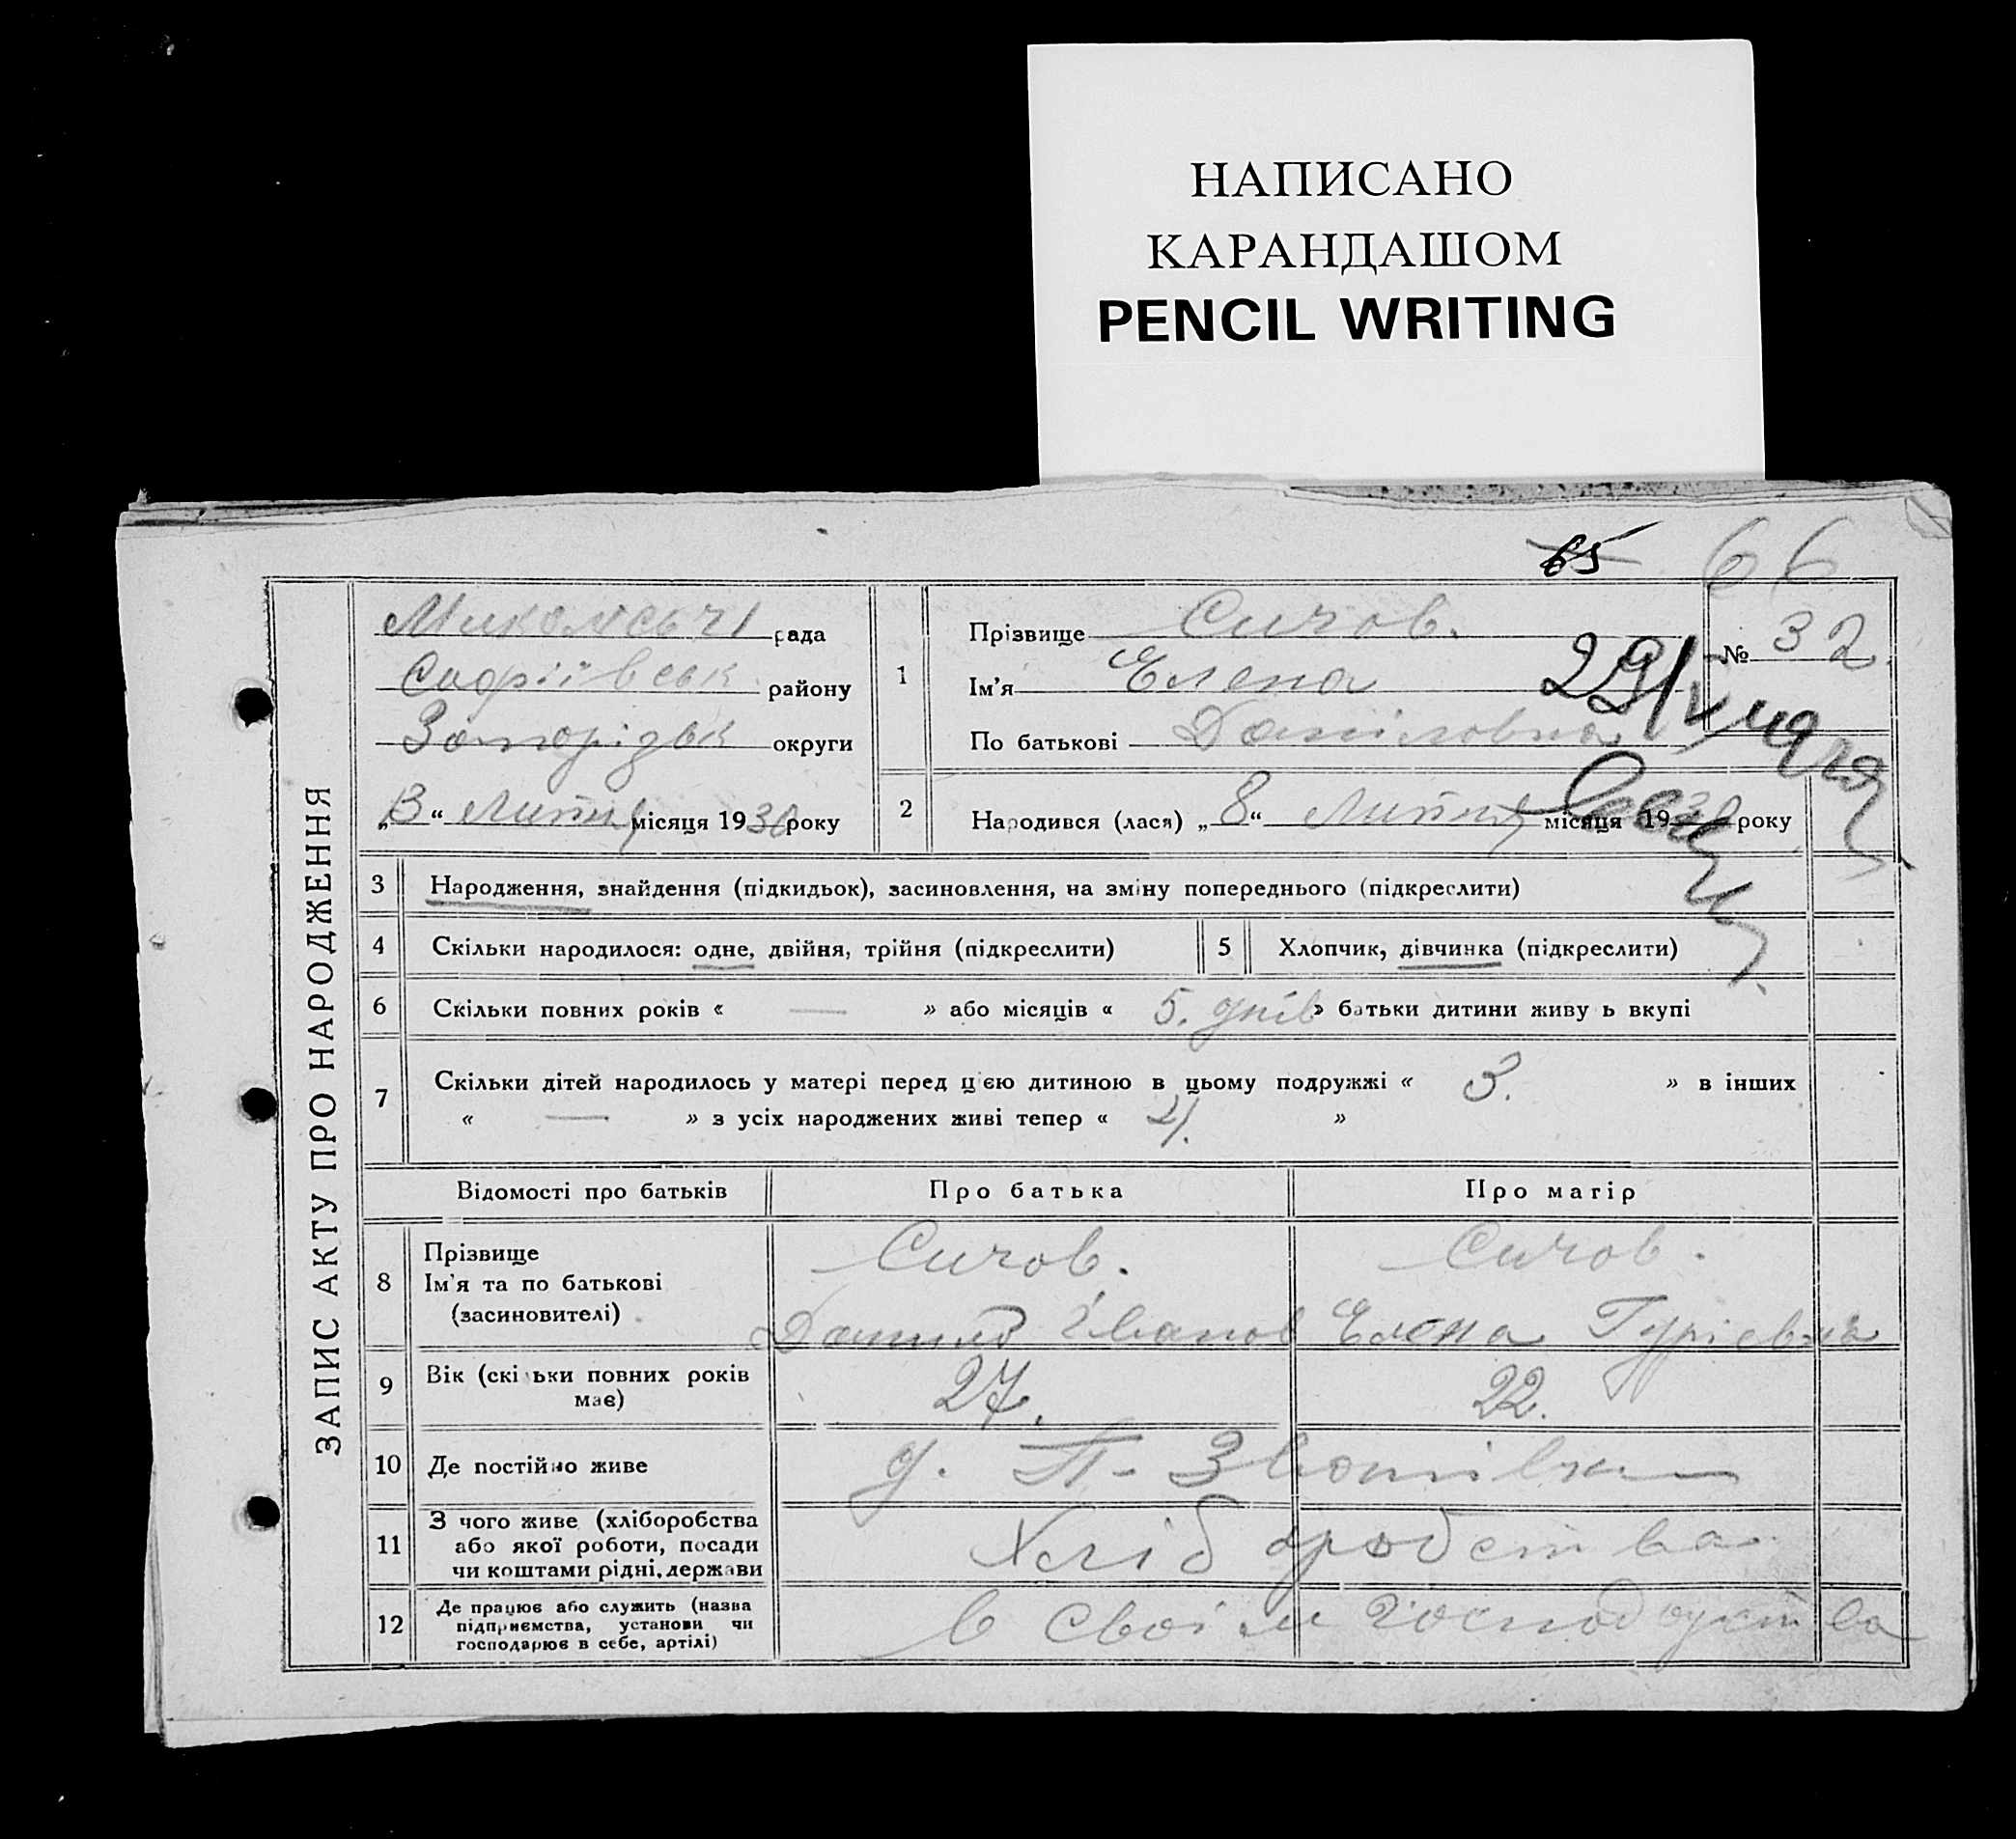 НАПИСАНО
КАРАНДАШОМ
PENCIL WRITING
65 66
ЗАПИС АКТУ ПРО НАРОДЖЕННЯ
рада
Софіївськ району
Запорізьк округи
„13“ Липня місяця 1930 року
1
Прізвище Сичов.
Ім'я Елена
По батькові Даніловна
№ 32
29/V
2 Народився (лася) „8“ Липня місяця 1930 року
3 Народження, знайдення (підкидьок), засиновлення, на зміну попереднього (підкреслити)
4 Скільки народилося: одне, двійня, трійня (підкреслити) 5 Хлопчик, дівчинка (підкреслити)
6 Скільки повних років « — » або місяців « 5. днів » батьки дитини живу ь вкупі
7 Скільки дітей народилось у матері перед цією дитиною в цьому подружжі « 3. » в інших
« — » з усіх народжених живі тепер « »
Відомості про батьків Про батька Про матір
8 Прізвище Сичов. Сичов.
Ім'я та по батькові
(засиновителі) Данило Іванов Елена Гурієвна
9 Вік (скільки повних років має) 27. 22.
10 Де постійно живе д. П-
11 З чого живе (хліборобства або якої роботи, посади чи коштами рідні, держави Хліборобства
12 Де працює або служить (назва підприємства, установи чи господарює в себе, артілі) в своїм господарства